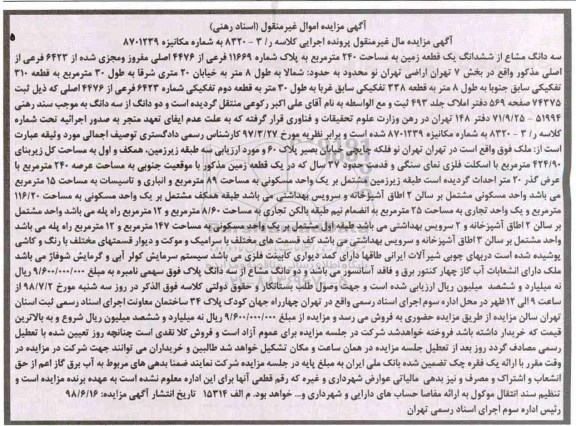 آگهی مزایده اموال غیرمنقول (اسناد رهنی)
آگهی مزایده مال غیرمنقول پرونده اجرایی کلاسه ر/ ۳ - ۸۳۲۰ به شماره مکانیزه ۸۷۰۱۲۳۹
سه دانگ مشاع از ششدانگ یک قطعه زمین به مساحت ۲۴۰ مترمربع به پلاک شماره ۱۱۶۶۹ فرعی از ۴۴۷۶ اصلی مفروز ومجزی شده از ۶۴۲۳ فرعی از
اصلی مذکور واقع در بخش ۷ تهران اراضی تهران نو محدود به حدود: شمالا به طول ۸ متر به خیابان ۲۰ متری شرقا به طول ۳۰ مترمربع به قطعه ۳۱۰
تفکیکی سابق جنوبا به طول ۸ متر به قطعه ۳۲۸ تفکیکی سابق غربا به طول ۳۰ متر به قطعه دوم تفکیکی شماره ۶۴۲۳ فرعی از ۴۴۷۶ اصلی که ذیل ثبت
۷۴۳۷۵ صفحه ۵۶۹ دفتر املاک جلد ۴۹۳ ثبت و مع الواسطه به نام آقای علی اکبر رکوعی منتقل گردیده است و دو دانگ از سه دانگ به موجب سند رهنی
۵۱۹۹۴ - ۷۱/۹/۲۵ دفتر ۱۴۸ تهران در رهن وزارت علوم تحقیقات و فناوری قرار گرفته که به علت عدم ایفای تعهد منجر به صدور اجرائیه تحت شماره
کلاسه ر/ ۳ - ۸۳۲۰ به شماره مکانیزه ۸۷۰۱۲۳۹ شده است و برابر نظریه مورخ ۹۷/۳/۲۷ کارشناس رسمی دادگستری توصیف اجمالی مورد وثیقه عبارت
است از: ملک فوق واقع است در تهران تهران نو فلکه چایچی خیابان بصیر پلاک ۶۰ و مورد ارزیابی سه طبقه زیرزمین، همکف و اول به مساحت کل زیربنای
۴۲۴/۹۰ مترمربع با اسکلت فلزی نمای سنگی و قدمت حدود ۳۷ سال که در یک قطعه زمین مذکور با موقعیت جنوبی به مساحت عرصه ۲۴۰ مترمربع با
عرض گذر ۲۰ متر احداث گردیده است طبقه زیرزمین مشتمل بر یک واحد مسکونی به مساحت ۸۹ مترمربع و انباری و تاسیسات به مساحت ۱۵ مترمربع
می باشد واحد مسکونی مشتمل بر سالن ۲ اطاق آشپزخانه و سرویس بهداشتی می باشد طبقه همکف مشتمل بر یک واحد مسکونی به مساحت ۱۱۶/۲۰
مترمربع و یک واحد تجاری به مساحت ۲۵ مترمربع به انضمام نیم طبقه بالکن تجاری به مساحت ۸/۶۰ مترمربع و ۱۲ مترمربع راه پله می باشد واحد مشتمل
بر سالن ۲ اطاق آشپزخانه و ۲ سرویس بهداشتی می باشد طبقه اول مشتمل بر یک واحد مسکونی به مساحت ۱۴۷ مترمربع و ۱۲ مترمربع راه پله می باشد
واحد مشتمل بر سالن ۳ اطاق آشپزخانه و سرویس بهداشتی می باشد کف قسمت های مختلف با سرامیک و موکت و دیوار قسمتهای مختلف با رنگ و کاشی
پوشیده شده است دربهای چوبی شیرآلات ایرانی طاقها دارای کمد دیواری کابینت فلزی می باشد سیستم سرمایش کولر آبی و گرمایش شوفاژ می باشد
ملک دارای انشعابات آب گاز چهار کنتور برق و فاقد آسانسور می باشد و دو دانگ مشاع از سه دانگ پلاک فوق سهمی نامبرده به مبلغ ۹/۶۰۰/۰۰۰/۰۰۰ ریال
نه میلیارد و ششصد میلیون ریال ارزیابی شده است و جهت وصول طلب بستانکار و حقوق دولتی کلاسه فوق الذکر در روز سه شنبه مورخ ۹۸/۷/۲ از
ساعت ۹ الی ۱۲ظهر در محل اداره سوم اجرای اسناد رسمی واقع در تهران چهارراه جهان کودک پلاک ۳۴ ساختمان معاونت اجرای اسناد رسمی ثبت استان
تهران سالن مزایده از طریق مزایده حضوری به فروش می رسد و مزایده از مبلغ ۹/۶۰۰/۰۰۰/۰۰۰ ریال نه میلیارد و ششصد میلیون ریال شروع و به بالاترین
قیمت که خریدار داشته باشد فروخته خواهدشد شرکت در جلسه مزایده برای عموم آزاد است و فروش کلا نقدی است چنانچه روز تعیین شده با تعطیل
رسمی مصادف گردد روز بعد از تعطیل جلسه مزایده در همان ساعت و مکان تشکیل خواهد شد طالبین و خریداران می توانند جهت شرکت در مزایده در
وقت مقرر با ارائه یک فقره چک تضمین شده بانک ملی ایران به مبلغ پایه در جلسه مزایده شرکت نمایند ضمنا بدهی های مربوط به آب برق گاز اعم از حق
انشعاب و اشتراک و مصرف و نیز بدهی مالیاتی عوارض شهرداری و غیره که رقم قطعی آنها برای این اداره معلوم نشده است به عهده برنده مزایده است و
تنظیم سند انتقال موکول به ارائه مفاصا حساب های دارایی و شهرداری و... خواهد بود. م الف ۱۵۳۱۴ تاریخ انتشار آگهی مزایده: ۹۸/۶/۱۶
رئیس اداره سوم اجرای اسناد رسمی تهران